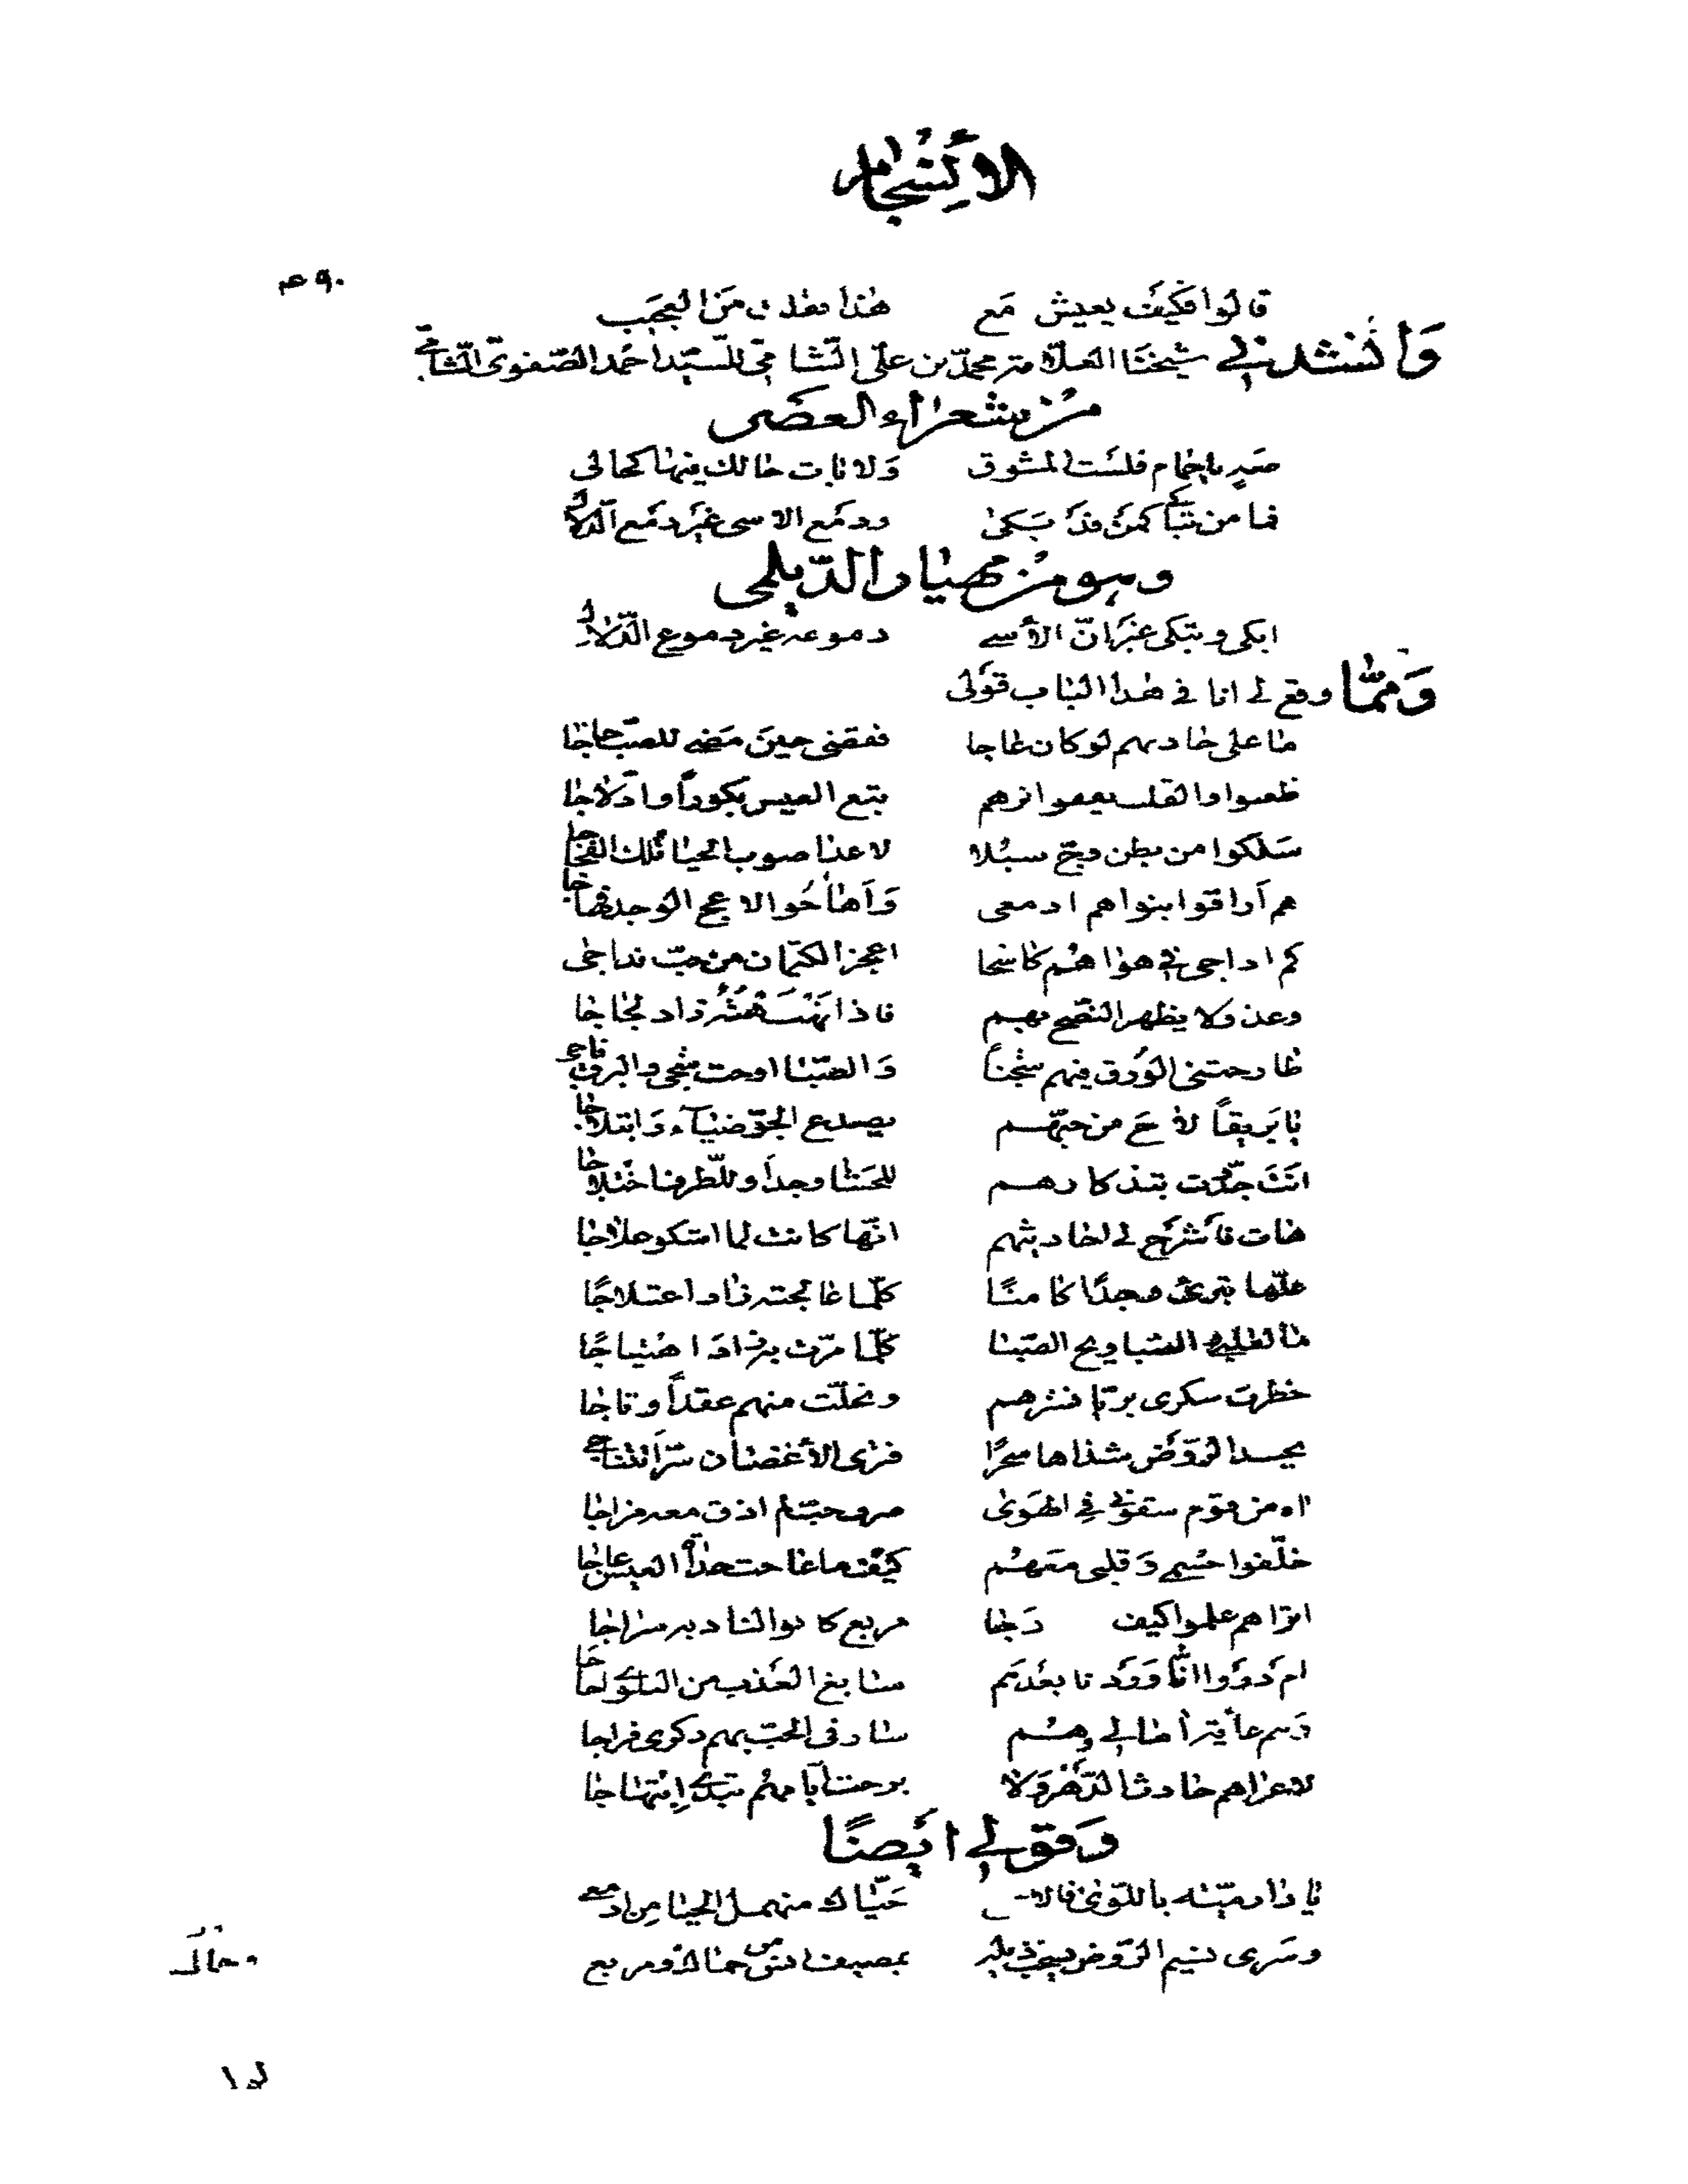 الانسجام
٤٩٠
قالوا فكيف يعيش مع هذا فقلت من العجب
وانشدني شيخنا العلامة محمد بن علي الشامي للسيد احمد الصفوي الشامي
من شعراء العصر
صه يا حمام فلست المشوق ولا بات حالك فيها كحالي
فما من تباكى كمن قد بكى ودمع الاسى غير دمع الدلال
وهو من مهيار الديلمي
ابكي وتبكي غير ان الأسى دموعه غير دموع الدلال
ومما وقع لي انا في هذا الباب قولي
ما على حاديهم لو كان عاجا فقضى حين مضى للصب حاجا
ظعنوا والقلب يقفو اثرهم يتبع العيس بكوراً وادلاجا
سلكوا من بطن وج سبلا لا عدا صوب الحيا تلك الفجاجا
هم اراقوا بنواهم ادمعي واهاجوا لاعج الوجد فهاجا
كم اداجي في هواهم كاشحا اعجز الكتمان من حب فداجى
وعذولا يظهر النصح بهم فاذا نهنهته زاد لجاجا
طارحتني الورق فيهم شجناً والصبا اوحت بشجو والبرق ناجى
يا بريقاً لاح من حيهم يصدع الجو ضياء وابتلاجا
انت جددت بتذكارهم للحشا وجداً وللطرف اختلاجا
هات فاشرح لي احاديثهم انها كانت لما اشكو علاجا
علها تبرئ وجدًا كامنًا كلما عالجته زاد اعتلاجًا
ما لقلبي والصبا ويح الصبا كلما مرت به زاد اهتياجًا
خطرت سكرى بريا نشرهم وتحلت منهم عقداً وتاجا
يحسد الروض شذاها سحرًا فترى الأغصان سراً تتناجى
اه من قوم سقوني في الهوى صرف حب لم اذق معه مزاجا
خلفوا جسمي وقلبي معهم كيفما عاجت حداة العيس عاجا
اتراهم علموا كيف دجا مربع كانوا لناديه سراجا
ام دروا انا وردنا بعدهم سائغ العذب من البلوى اجاجا
لا عراهم حادث الدهر ولا برحت ايامهم تبدي ابتهاجا
وقولي ايضًا
يا دار مية باللوى فالاجرع حياك منهمل الحيا من ادمعي
وسرى نسيم الروض يسحب ذيله بمصيف انس حماك ومربع